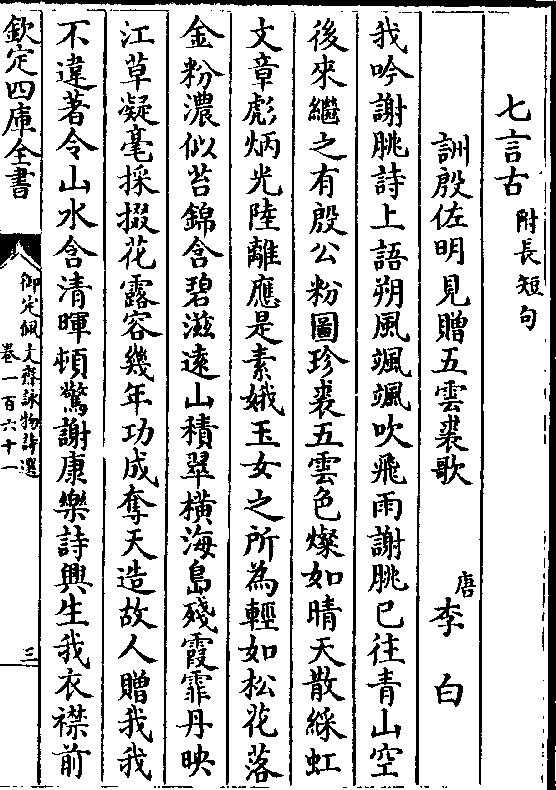 七言古 附長短句
詶殷佐明見贈五雲裘歌 唐 李白
我吟謝朓詩上語朔風颯颯吹飛雨謝朓已往青山空
後來繼之有殷公粉圖珍裘五雲色燦如晴天散綵虹
文章彪炳光陸離應是素娥玉女之所為輕如松花落
金粉濃似苔錦含碧滋遠山積翠橫海島殘霞霏丹映
江草凝毫採掇花露容幾年功成奪天造故人贈我我
不違著令山水含清暉頓驚謝康樂詩興生我衣襟前
欽定四庫全書
御定佩文齋詠物詩選
卷一百六十一
三